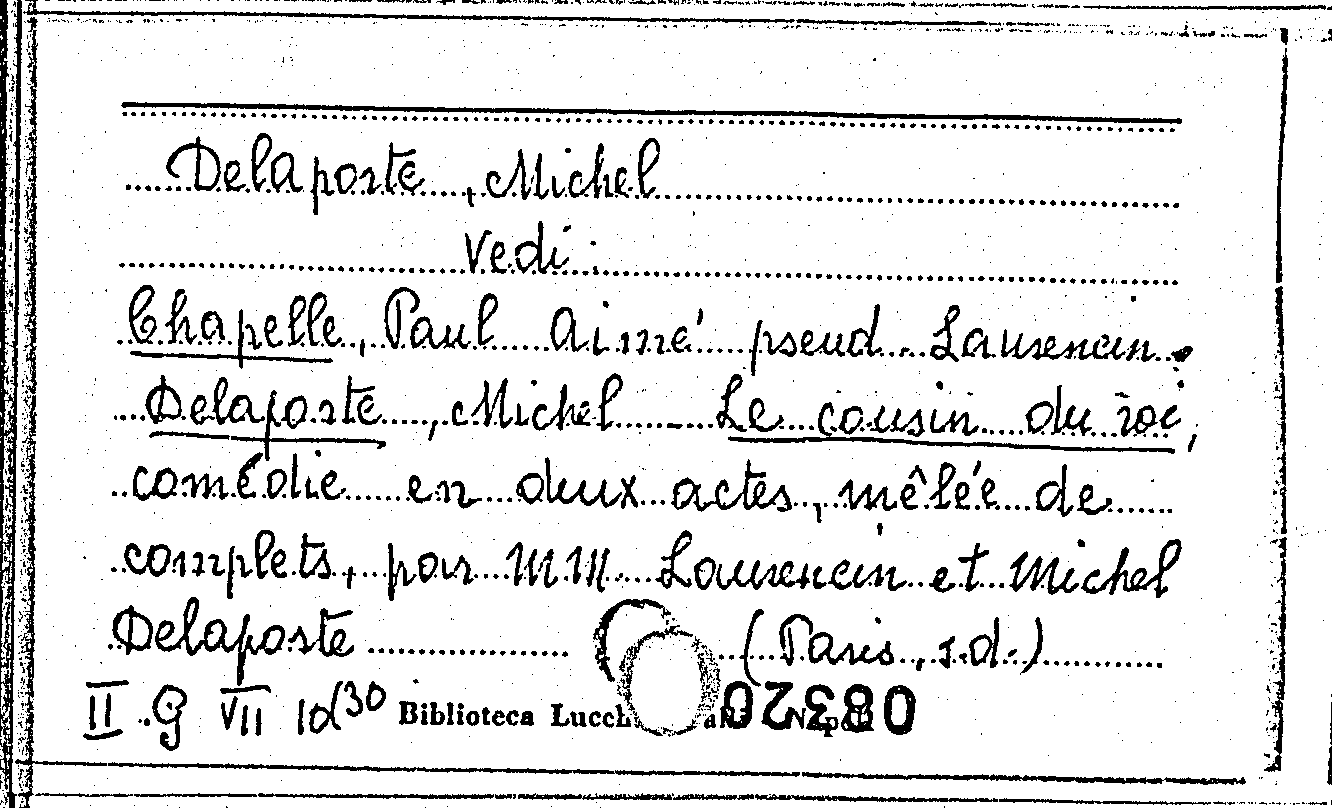 Delaporte, Michel
Vedi:
Chapelle, Paul Aimé pseud. Laurencin.
Delaporte, Michel Le cousin du roi,
comédie en deux actes, mêlée de
complets, par MM. Laurencin et Michel
Delaporte (Paris, s.d.)
II G VII 10(30 Biblioteca
08320